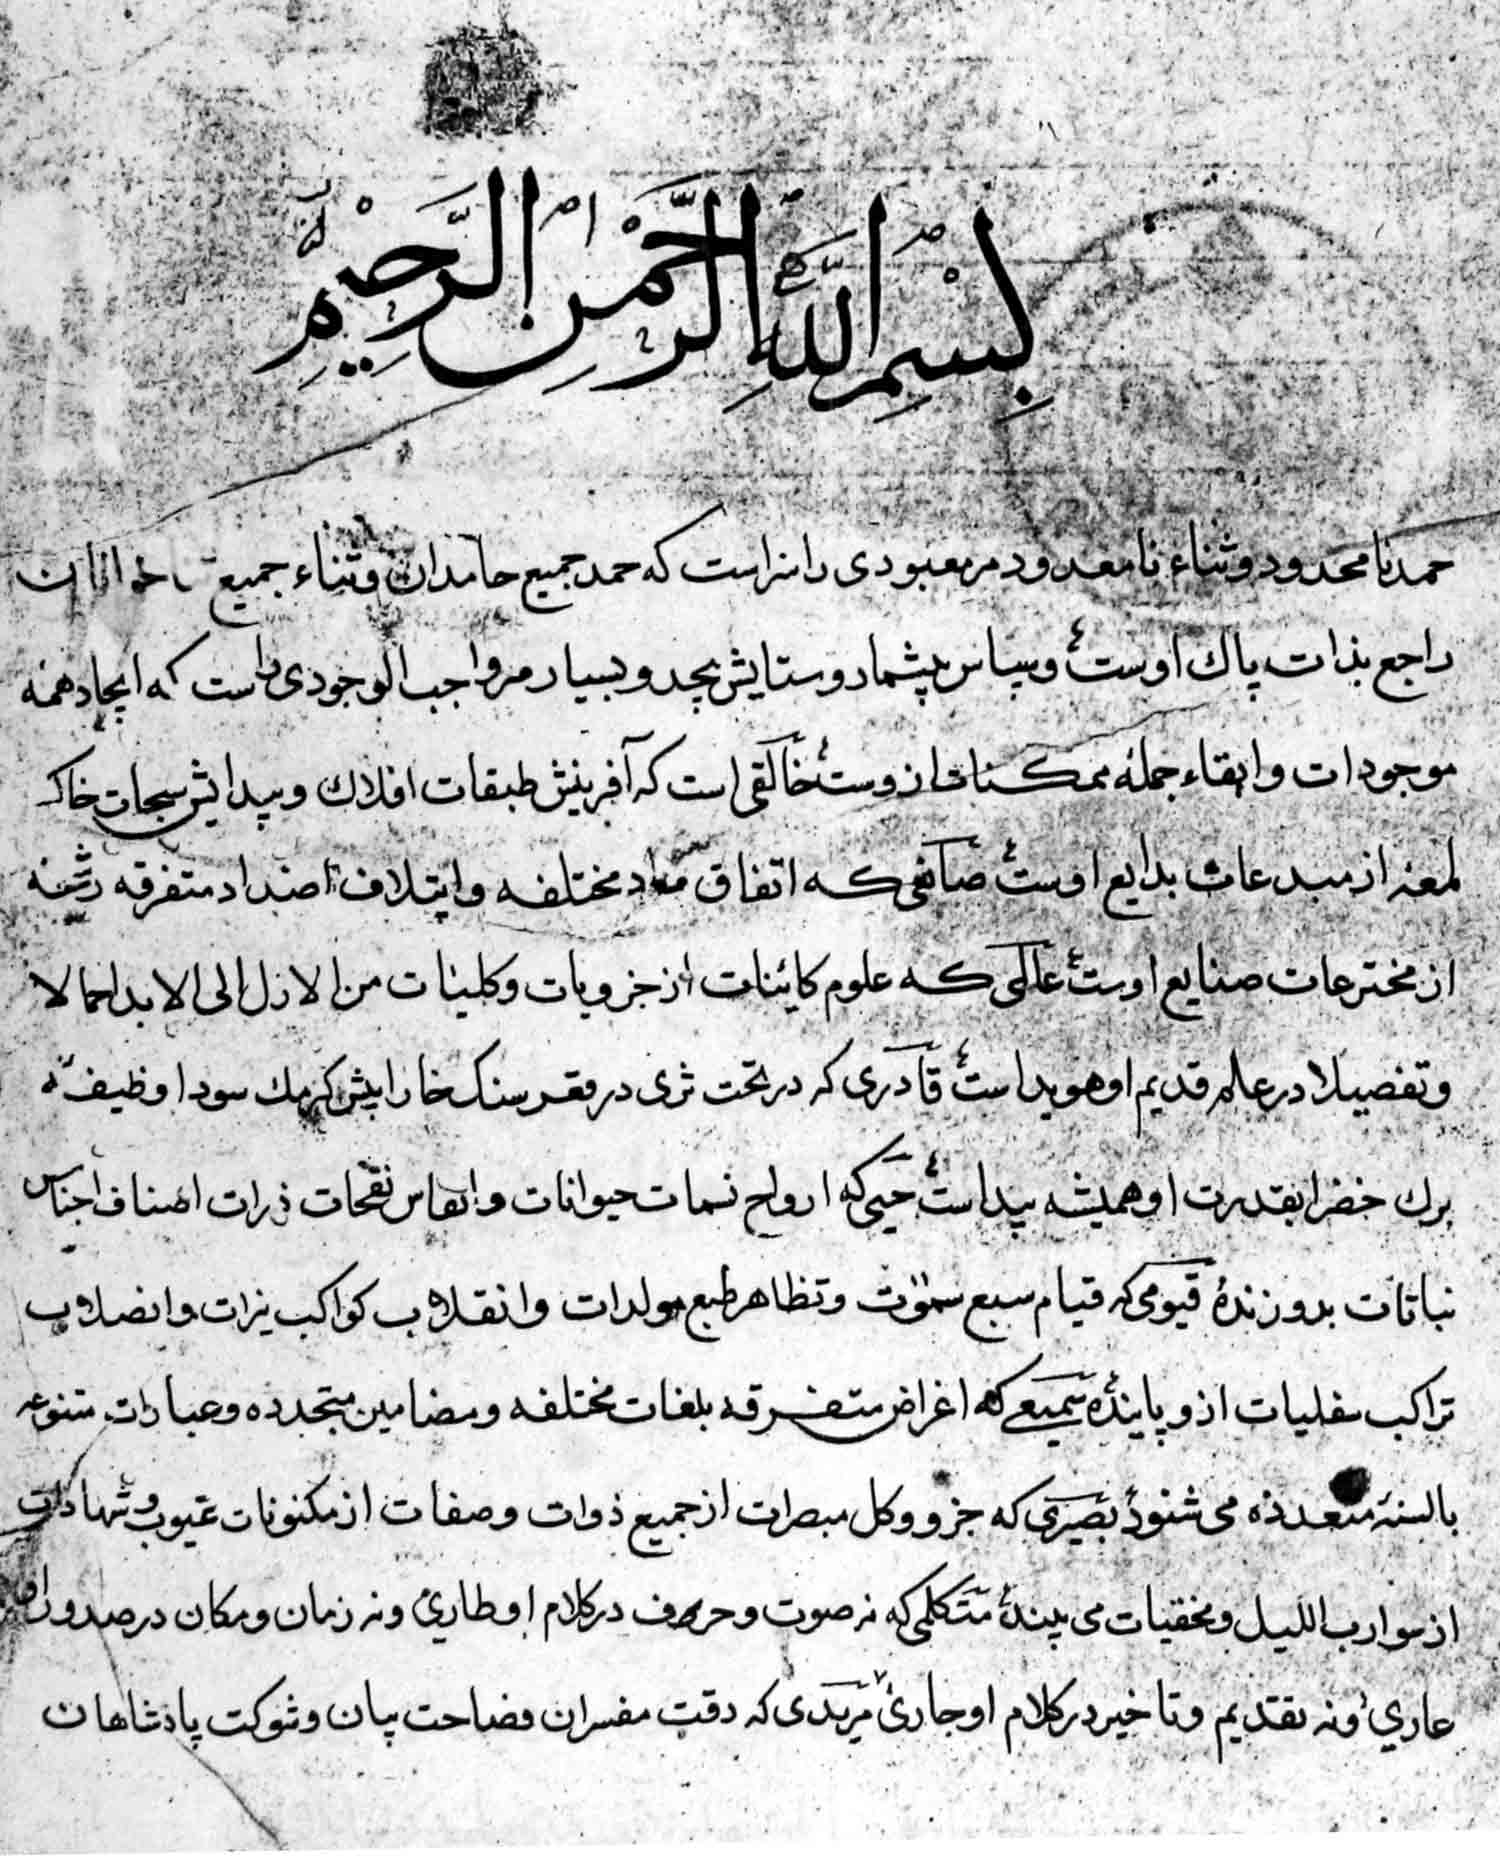 بِسْمِ اللَّهِ الرَّحْمٰنِ الرَّحِيمِ
حمد نا محدود و ثناء نا معدود مر معبودی را سزاست که حمد جمیع حامدان و ثناء جمیع
راجع بذات پاك اوست و سپاس بیشمار و ستایش بیحد و بسیار مر واجب الوجودی راست که ایجاد همه
موجودات و ابقاء جمله ممکنات ازوست خالقی است که آفرینش طبقات افلاك و پیدایش خاك
لمعه از مبدعات بدایع اوست صانعی که اتفاق مواد مختلفه و ایتلاف اضداد متفرقه رشحه
از مخترعات صنایع اوست عالمی که علوم کائینات از جزویات و کلیات من الازل الی الابد اجمالا
و تفصیلا در علم قدیم او هویداست قادری که در تحت ثری در قعر سنك خارا پیش کرمك سودا وظیفه
برك خضرا بقدرت او همیشه پیداست حیی که ارواح نسمات حیوانات و انفاس نفحات ذرات اصناف اجناس
نباتات بدو زنده قیومی که قیام سبع سموٰت و تظاهر طبع مولدات و انقلاب کواکب نیرات و انضلاب
تراکب سفلیات ازو پاینده سمیعی که اغراض متفرقه بلغات مختلفه و مضامین متجدده و عبارات متنوعه
بالسنه متعدده می شنود بصیری که جزو و کل مبصرات از جمیع ذوات و صفات از مکنونات غیوب و شهادات
از موارب اللیل و مخفیات می بیند متکلمی که نه صوت و حرف در کلام او طاری و نه زمان و مکان در صدور او
عاری و نه تقدیم و تاخیر در کلام او جاری مریدی که دقت مفسران فصاحت بیان و شوکت پادشاهان